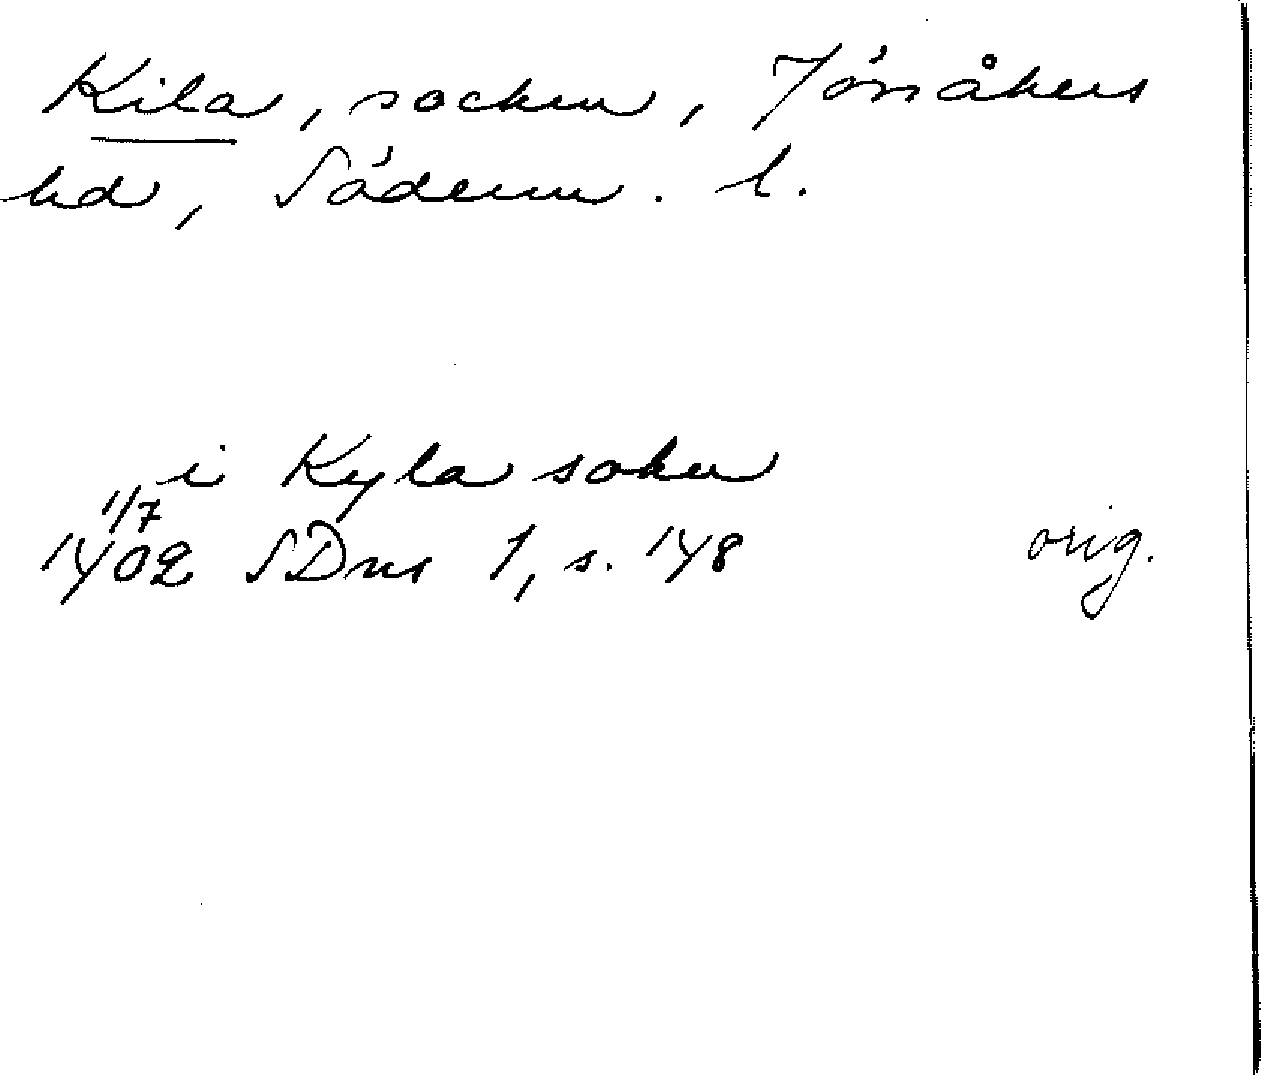 Kila, socken, Jönåkers
hd, Söderm. l.
i Kyla sokn
1/7
1402 SDns 1, s. 148 orig.